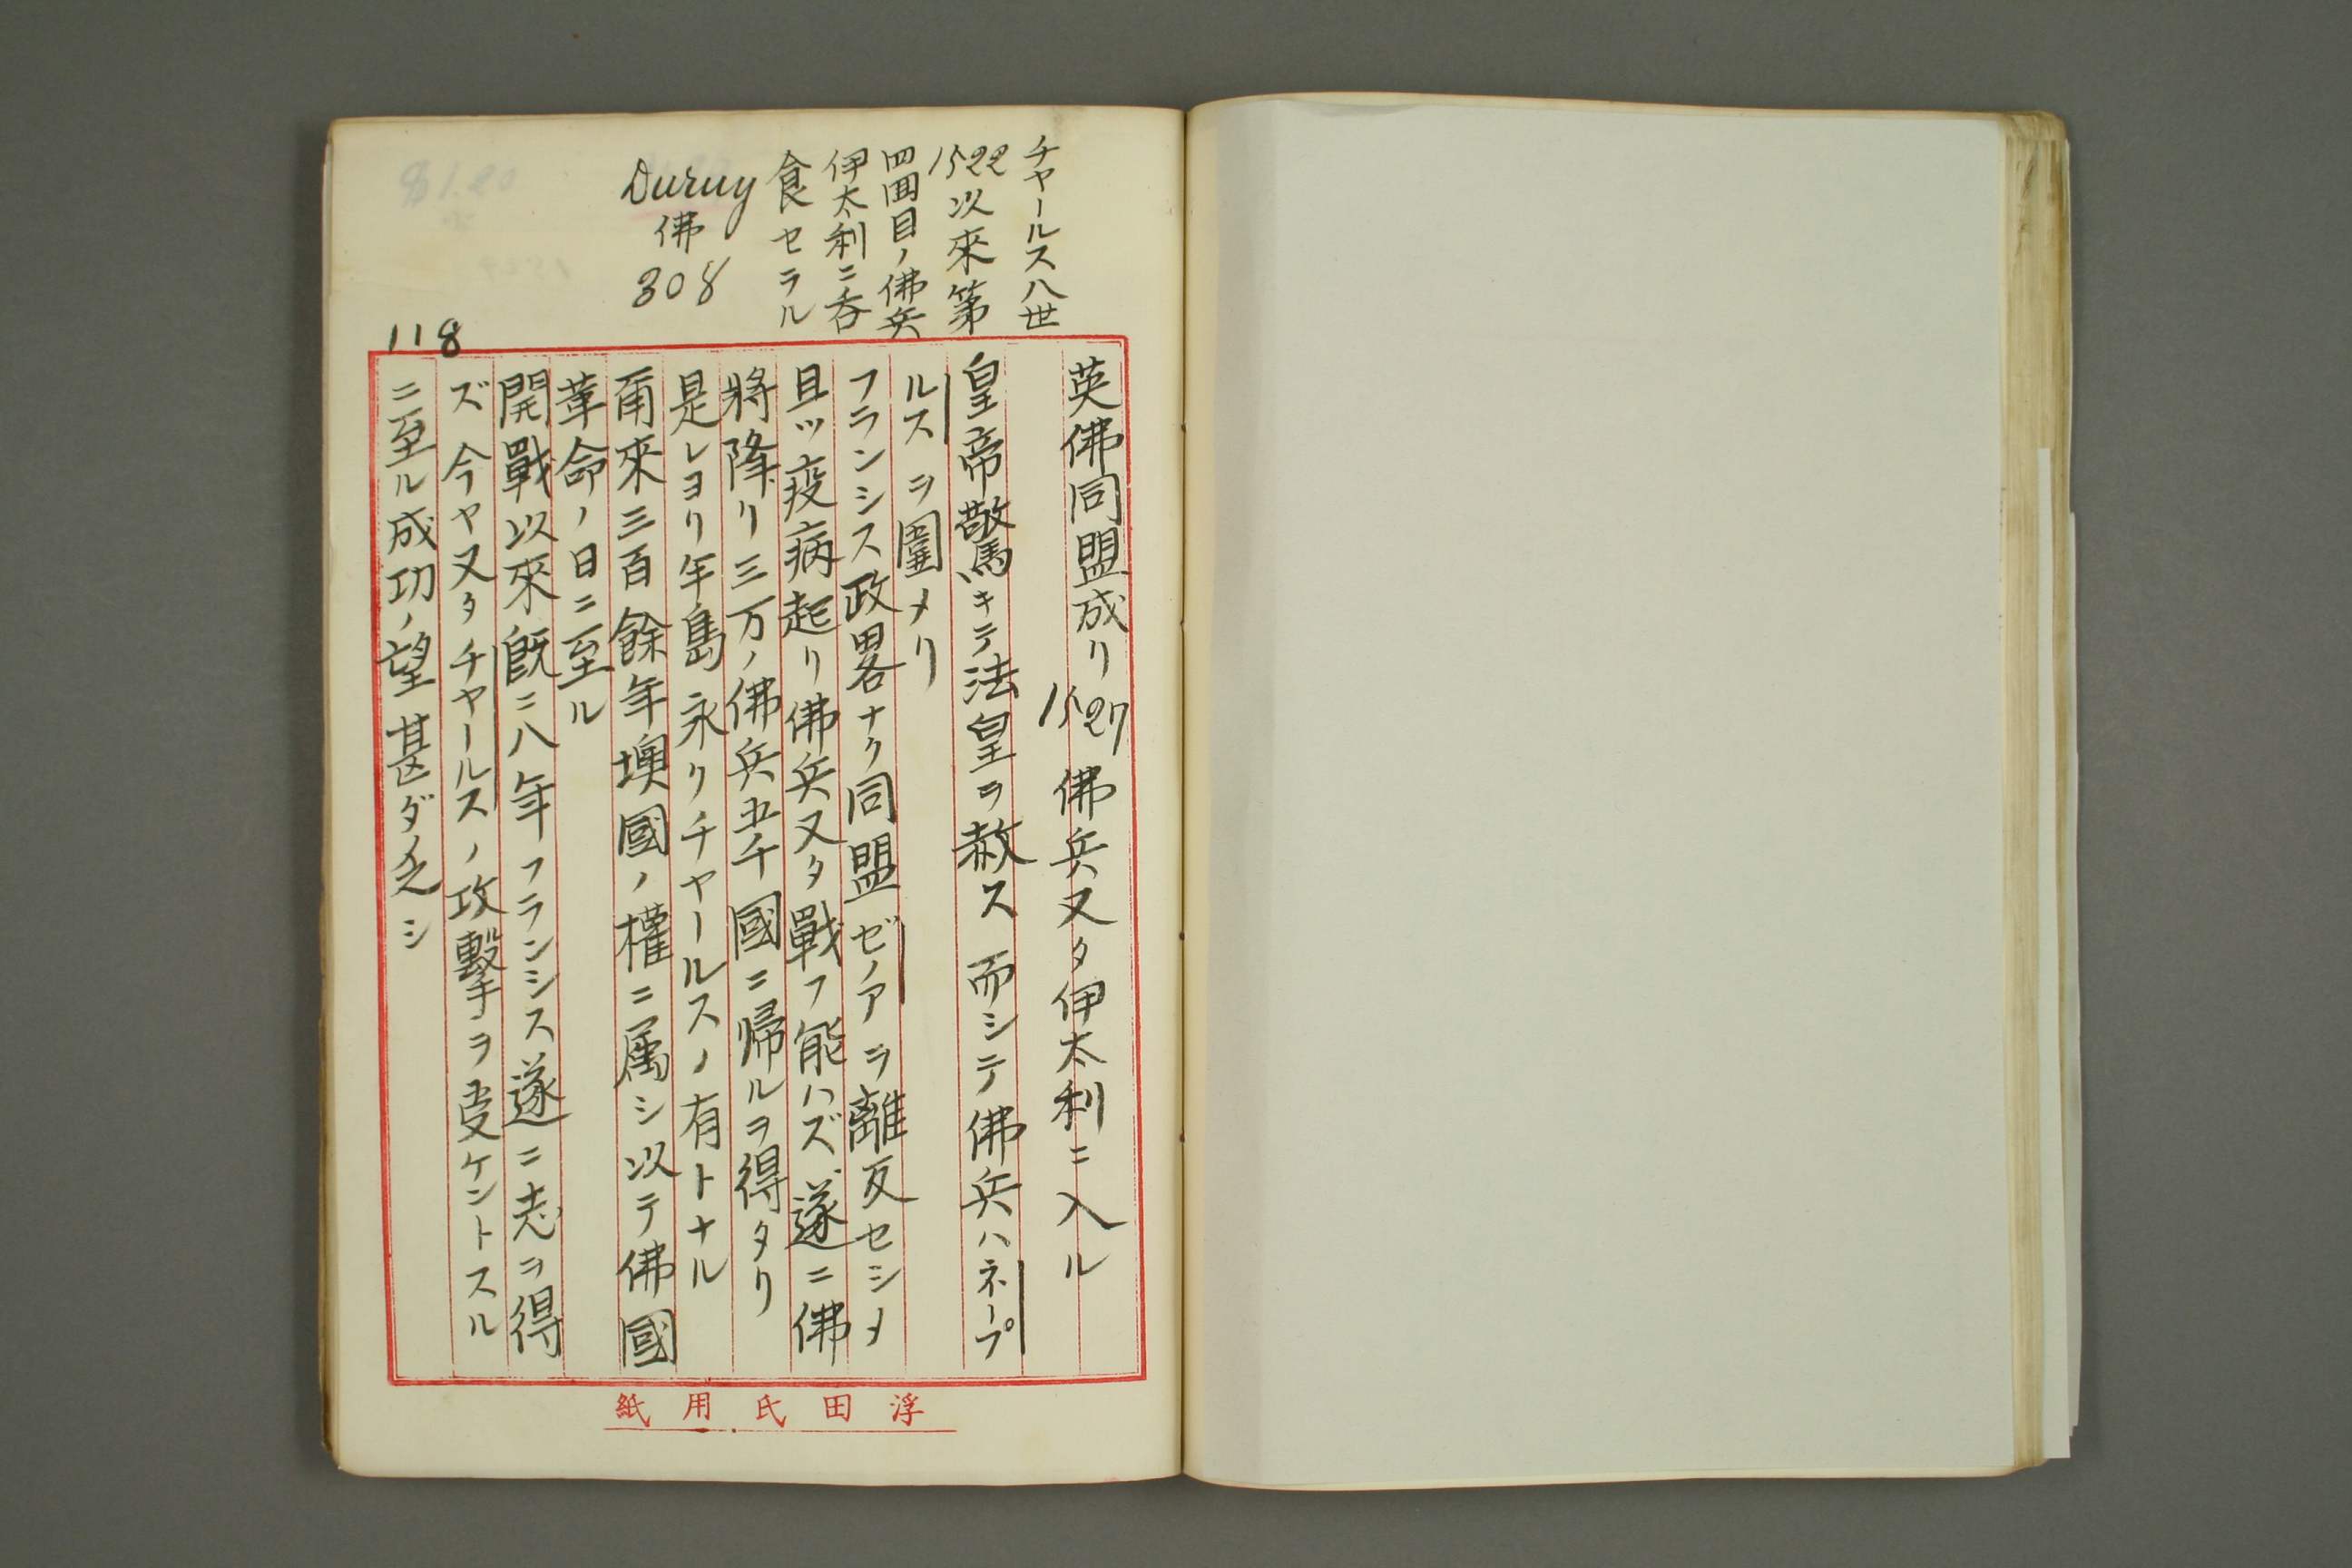 チャールス八世
1522以來第
四囬目ノ佛兵
伊太利ニ呑
食セラル
Duruy
佛
308
英佛同盟成リ 1527 佛兵又タ伊太利ニ入ル
皇帝驚キテ法皇ヲ赦ス 而シテ佛兵ハネープ
ルスヲ圍メリ
フランシス政畧ナク同盟ゼノアヲ離反セシメ
且ツ疫病起リ佛兵又タ戰フ能ハズ遂ニ佛
將降リ三万ノ佛兵五千國ニ帰ルヲ得タリ
是レヨリ年島永クチャールスノ有トナル
甫來三百餘年墺國ノ權ニ属シ以テ佛國
革命ノ日ニ至ル
開戰以來既ニ八年フランシス遂ニ志ヲ得
ズ 今ヤ又タチャールスノ攻擊ヲ受ケントスル
ニ至ル成功ノ望甚ダ乏シ
118
浮田氏用紙